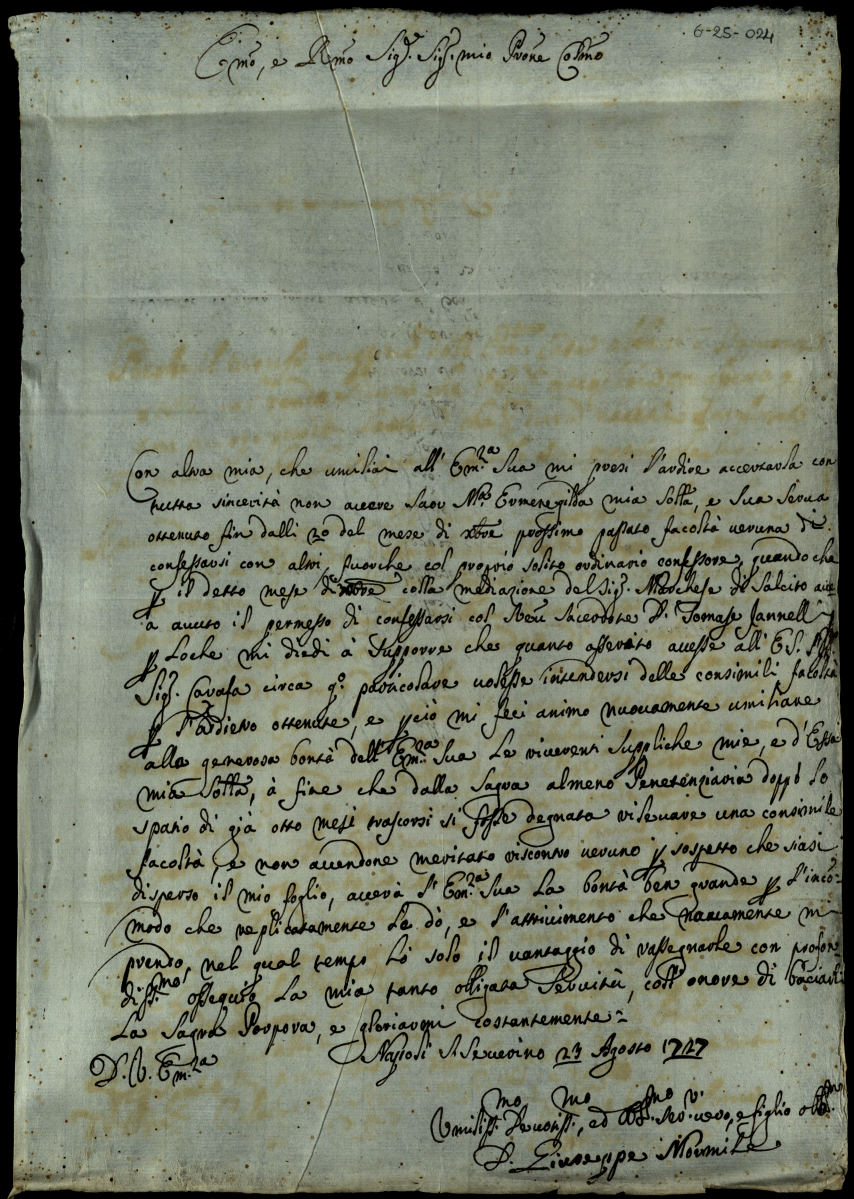 6-25-024
Emo, e Rmo Sig.r Sig.r mio Prone Colmo
Con altra mia, che umiliai all' Em.za Sua mi presi l'ardire accertarla con
tutta sincerità non avere Saor M.a Ermenegilda mia Sollà, e Sua Serva
ottenuto fin dalli 20 del mese di xbre prossimo passato facoltà veruna di
confessarsi con altri, fuorche col proprio solito ordinario confessore, quando che
p il detto mese di xbre colla mediazione del Sig.r Marchese di Salcito
à avuto il permesso di confessarsi col Sacerdote D. Tomase Jannelli
p Loche mi diedi à supporre che quanto asserito avesse all' E.S.
Sig.r Carafa circa q.o particolare volesse intendersi delle consimili facoltà
p l'addietro ottenute, e pciò mi feci animo nuovamente umiliare
alla generosa bontà dell' Em.za Sua Le riverenti Suppliche mie, e d'Essa
mia Sollà, à fine che dalla Sagra almeno Penetenziaria doppò lo
spatio di già otto mesi trascorsi si fosse degnata rilevare una consimile
facoltà, e non avendone meritato riscontro veruno p sospetto che siasi
disperso il mio foglio, averà l' Em.za Sua La bontà ben grande p l'inco-
modo che replicatamente Le dò, e l'attrivimento che mi
prendo, nel qual tempo hò solo il vantaggio di rassegnarle con profon
diss.mo ossequio La mia tanto obligata Servitù, coll' onore di baciarli
La Sagra Porpora, e gloriarmi costantemente
D. V. Em.za
Napoli S. Severino 23 Agosto 1727
Umiliss.mo Devotiss.mo, ed Obl.mo Ser.vi vero, e figlio
D. Giuseppe Mormile